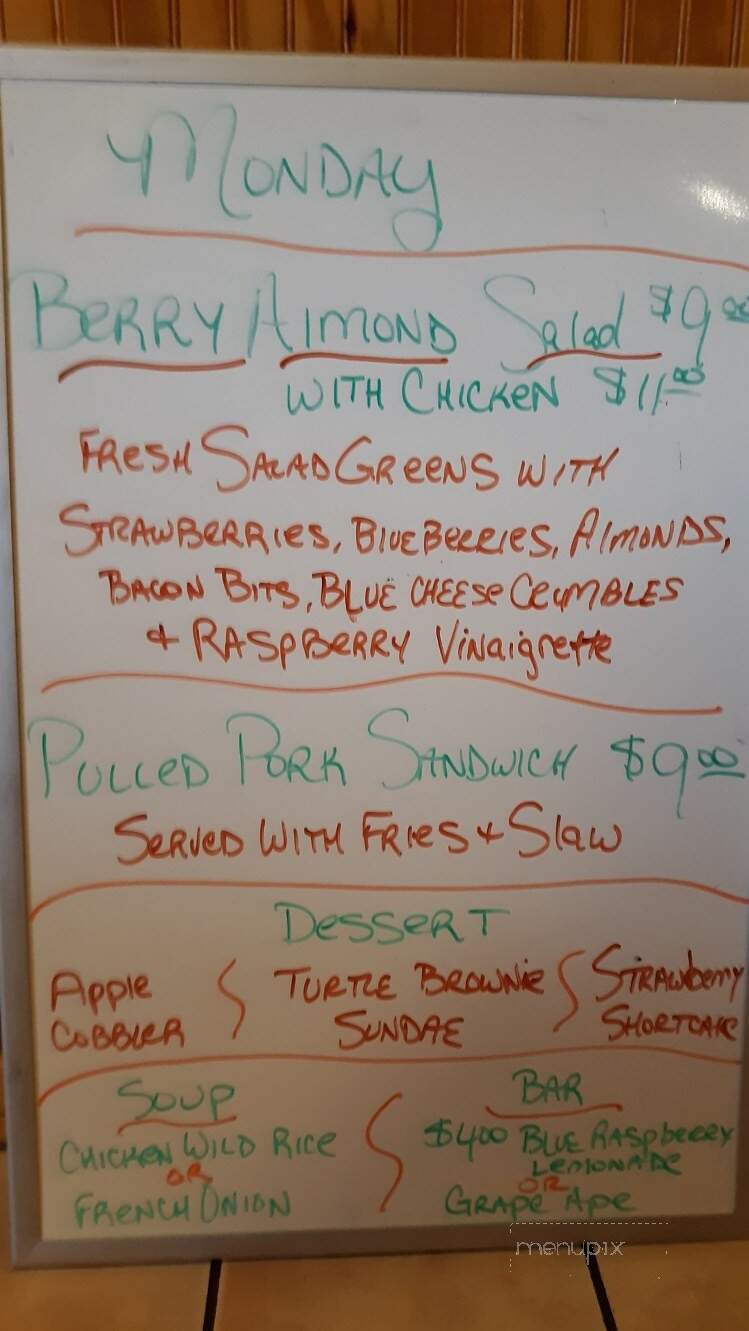 Monday
Berry Almond Salad $9.00
with Chicken $11.00
Fresh Salad Greens with
Strawberries, Blueberries, Almonds,
Bacon Bits, Blue Cheese Crumbles
& Raspberry Vinaigrette
Pulled Pork Sandwich $9.00
Served with Fries & Slaw
Dessert
Apple
Cobbler
Turtle Brownie
Sundae
Strawberry
Shortcake
Soup
Chicken Wild Rice
or
French Onion
Bar
$4.00 Blue Raspberry
Lemonade
or
Grape Ape
menupix